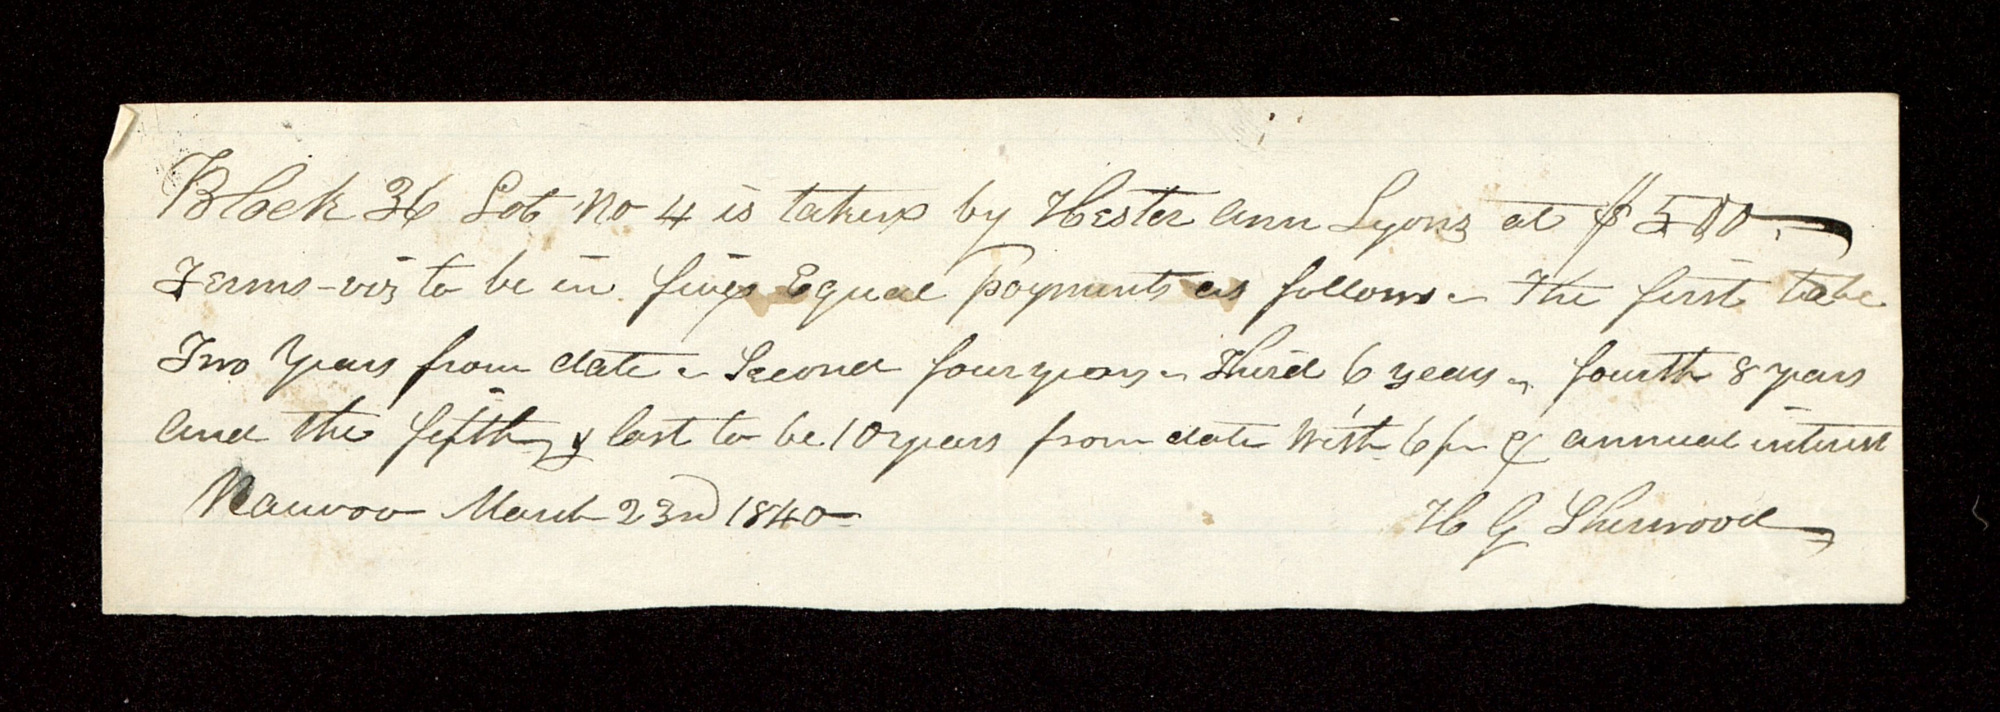 Block 36 Lot No 4 is taken by Hester Ann Lyons at $500
Terms-viz to be in five Equal payments as follows - The first to be
Two Years from date - Second four years - Third 6 years - fourth 8 years
and the fifth & last to be 10 years from date With 6 per ct annual interest
Nauvoo March 23rd 1840
H G Sherwood